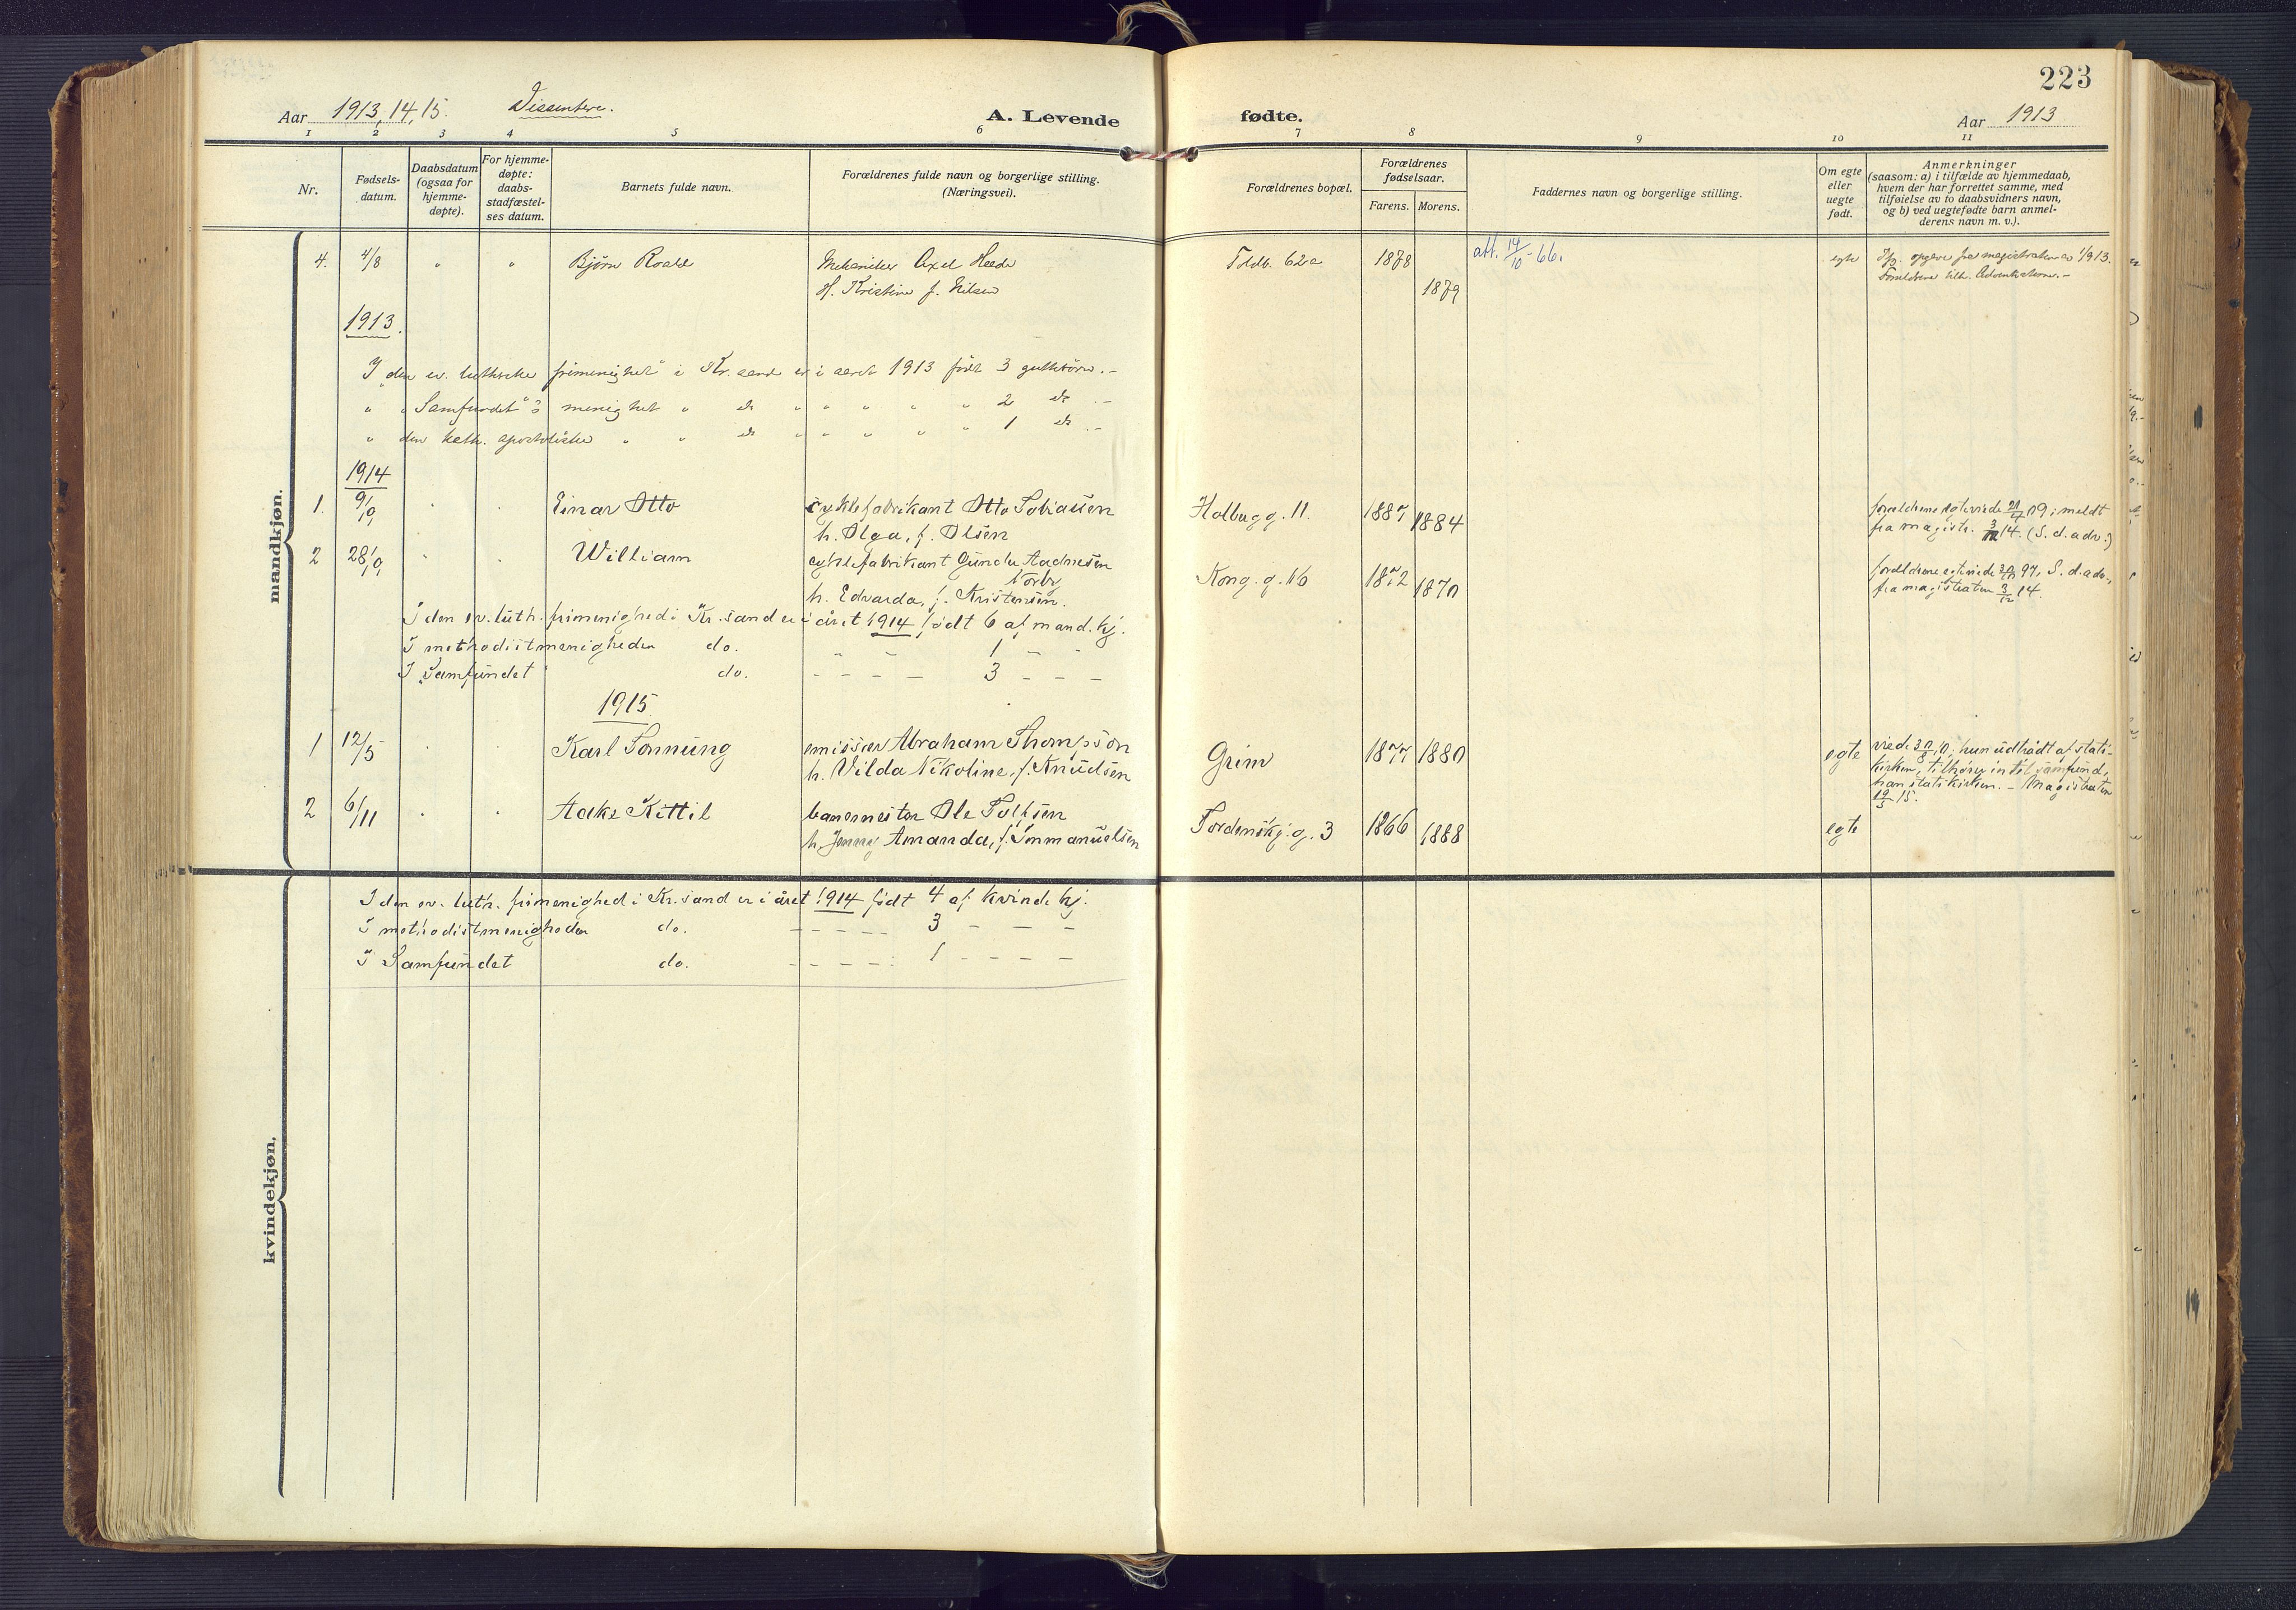 223
Aar 1913, 14, 15. Dissentere. A. Levende fødte. Aar 1913
1 2 3 4 5 6 7 8 9 10 11
Nr.
Fødsels-
datum.
Daabsdatum
(ogsaa for
hjemme-
døpte).
For hjemme-
døpte:
daabs-
stadfæstel-
ses datum.
Barnets fulde navn.
Forældrenes fulde navn og borgerlige stilling.
(Næringsvei).
Forældrenes bopæl.
Forældrenes
fødselsaar.
Farens. Morens.
Faddernes navn og borgerlige stilling.
Om egte
eller
uegte
født.
Anmerkninger
(saasom: a) i tilfælde av hjemmedaab,
hvem der har forrettet samme, med
tilføielse av to daabsvidners navn,
og b) ved uegtefødte barn anmel-
derens navn m. v.).
mandkjøn.
4. 4/8 " " Bjørn Roald Mekaniker Axel Heede Toldb. 62a 1878 att. 14/10-66. egte opgave fra magistraten
H. Kristine f. Nilsen 1879
1913.
I den ev. lutherske frimenighet i Kr.sand er i aaret 1913 født 3 guttebørn.-
" "Samfundet"s menighet " do " " " " " 2 do .-
" den kath. apostoliske " " do " " " " " 1 do .-
1914
1. 9/9 Einar Otto cyklefabrikant Otto Tobiassen Holbergg. 11. 1887 1884 forældrene egteviede 09; meldt
h. Olga, f. Olsen fra magistr. 3/12 14. (S. d. adv.)
2 28/9 William cyklefabrikant Gunder Aadnesen Kong. g. 16 1872 1870 forældrene egteviede 97, S. d. adv.,
Norby fra magistraten 3/12 14.
h. Edvarda, f. Kristensen.
I den ev. luth. frimenighed i Kr.sand er i året 1914 født 6 af mand. kj.
I methodistmenigheden do. - - 1 - -
I Samfundet do. - - - - 3 - - -
1915
1 12/5 Karl Tonning emissær Abraham Thompson Grim 1877 1880 egte viede 10; hun udtrådt af stats-
h. Vilda Nikoline, f. Knudsen kirken, tilhører intet samfund,
han statskirken. - Magistraten
19/5 15.
2 6/11 Aake Kittil banemester Ole Tolfsen Tordenskj. g. 3 1866 1888 egte
h. Jenny Amanda, f. Immanuelsen
kvindekjøn.
I den ev. luth. frimenighed i Kr.sand er i året 1914 født 4 af kvinde kj.
I methodistmenigheden do. - - - - - 3 - - - -
I Samfundet do. - - - - - 1 - - - -